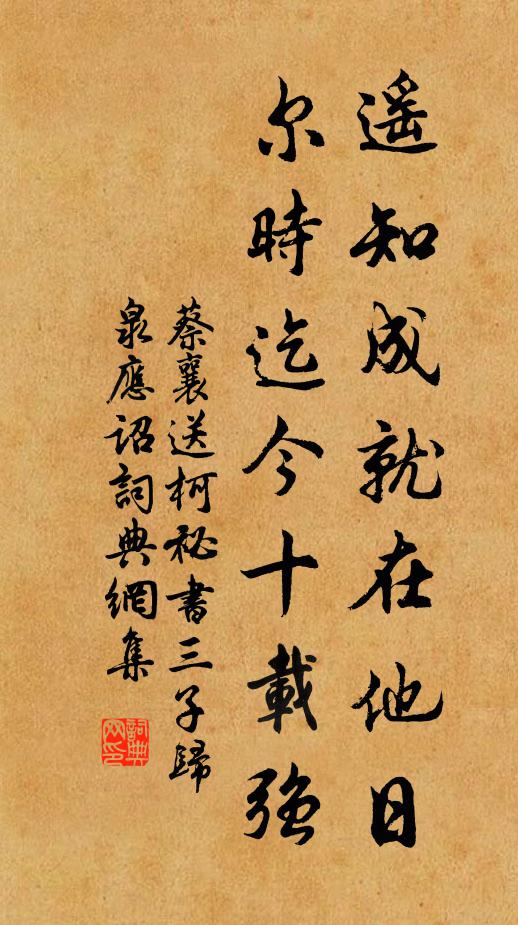 遥知成就在他日
尔時迄今十載强
蔡襄送柯秘書三子歸
泉應詔詞典網集
詞典
网印